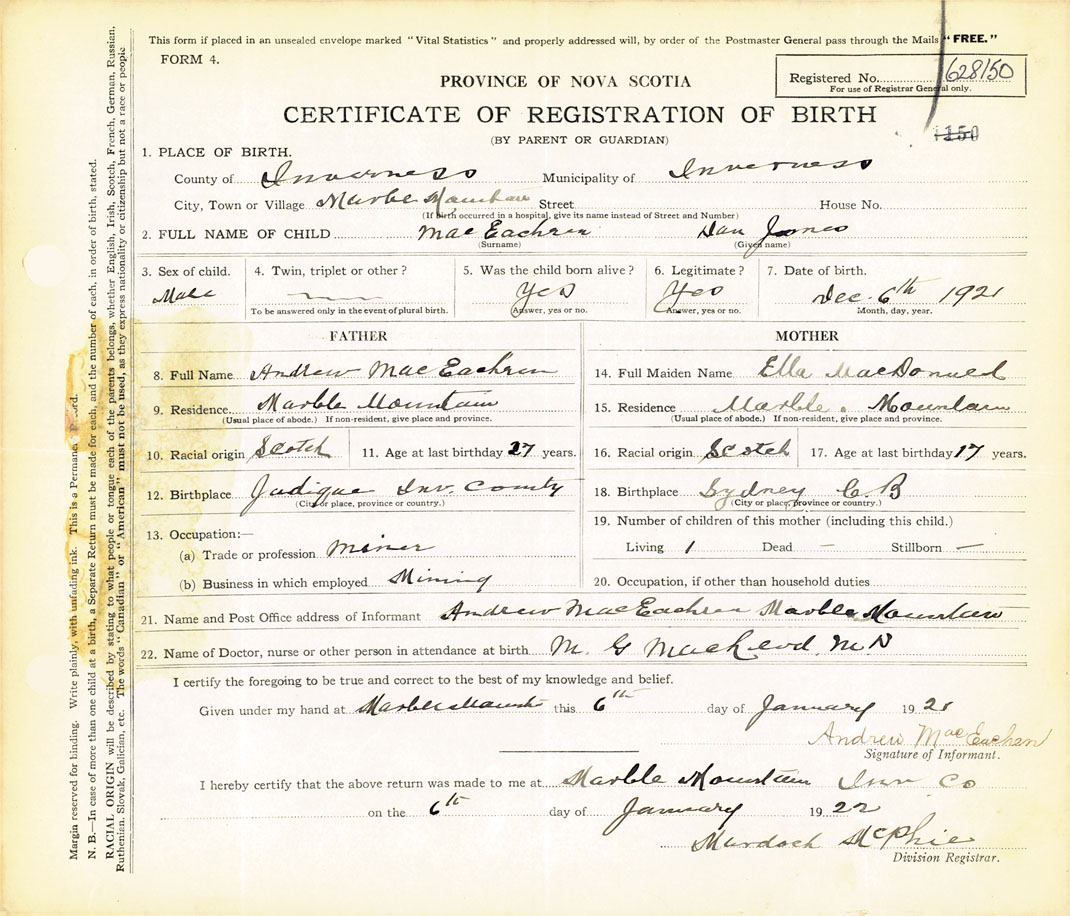 This form if placed in an unsealed envelope marked "Vital Statistics" and properly addressed will, by order of the Postmaster General pass through the Mails "FREE."
FORM 4.
PROVINCE OF NOVA SCOTIA
Registered No. 628150
For use of Registrar General only.
CERTIFICATE OF REGISTRATION OF BIRTH
1150
(BY PARENT OR GUARDIAN)
1. PLACE OF BIRTH.
County of Inverness Municipality of Inverness
City, Town or Village Marble Mountain Street House No.
(If birth occurred in a hospital, give its name instead of Street and Number)
2. FULL NAME OF CHILD MacEachren Dan James
(Surname) (Given name)
3. Sex of child. 4. Twin, triplet or other? 5. Was the child born alive? 6. Legitimate? 7. Date of birth.
Male Yes Yes Dec. 6th 1921
To be answered only in the event of plural birth. Answer, yes or no. Answer, yes or no. Month, day, year.
FATHER
8. Full Name Andrew MacEachren
9. Residence Marble Mountain
(Usual place of abode.) If non-resident, give place and province.
10. Racial origin Scotch 11. Age at last birthday 27 years.
12. Birthplace Judique Inv. County
(City or place, province or country.)
13. Occupation:—
(a) Trade or profession Miner
(b) Business in which employed Mining
MOTHER
14. Full Maiden Name Ella MacDonald
15. Residence Marble Mountain
(Usual place of abode.) If non-resident, give place and province.
16. Racial origin Scotch 17. Age at last birthday 17 years.
18. Birthplace Sydney C.B
(City or place, province or country.)
19. Number of children of this mother (including this child.)
Living 1 Dead — Stillborn —
20. Occupation, if other than household duties
21. Name and Post Office address of Informant Andrew MacEachren Marble Mountain
22. Name of Doctor, nurse or other person in attendance at birth M. G MacLeod. M D
I certify the foregoing to be true and correct to the best of my knowledge and belief.
Given under my hand at this 6th day of January 1921
Andrew MacEachen
Signature of Informant.
I hereby certify that the above return was made to me at Marble Mountain Inv Co
on the 6th day of January 1922
Murdoch McPhie
Division Registrar.
Margin reserved for binding. Write plainly, with unfading ink. This is a Permanent Record.
N. B.—In case of more than one child at a birth, a Separate Return must be made for each, and the number of each, in order of birth, stated.
RACIAL ORIGIN will be described by stating to what people or tongue each of the parents belongs, whether English, Irish, Scotch, French, German, Russian,
Ruthenian, Slovak, Galician, etc. The words "Canadian" or "American" must not be used, as they express nationality or citizenship but not a race or people